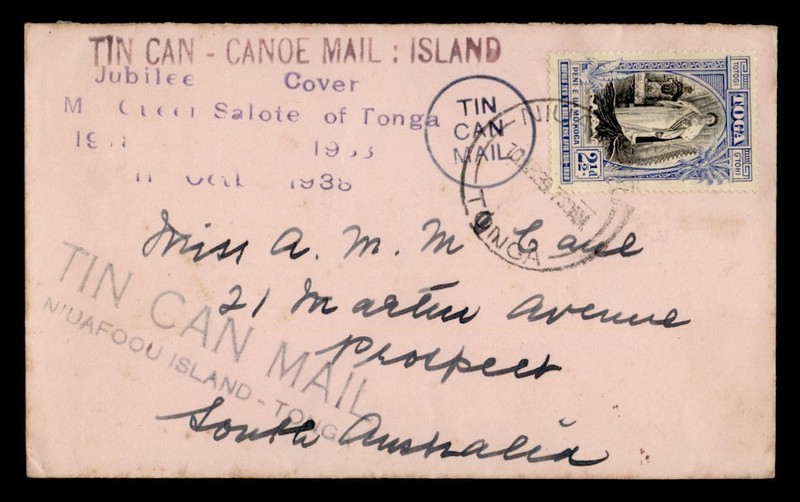 TIN CAN - CANOE MAIL : ISLAND
Jubilee Cover
Salote of Tonga
Octb 1938
TIN
CAN
MAIL
TOGA
2½d
TONGA
Miss A. M. M Cane
21 Martin Avenue
Prospect
South Australia
TIN CAN MAIL
NIUAFOOU ISLAND - TONGA